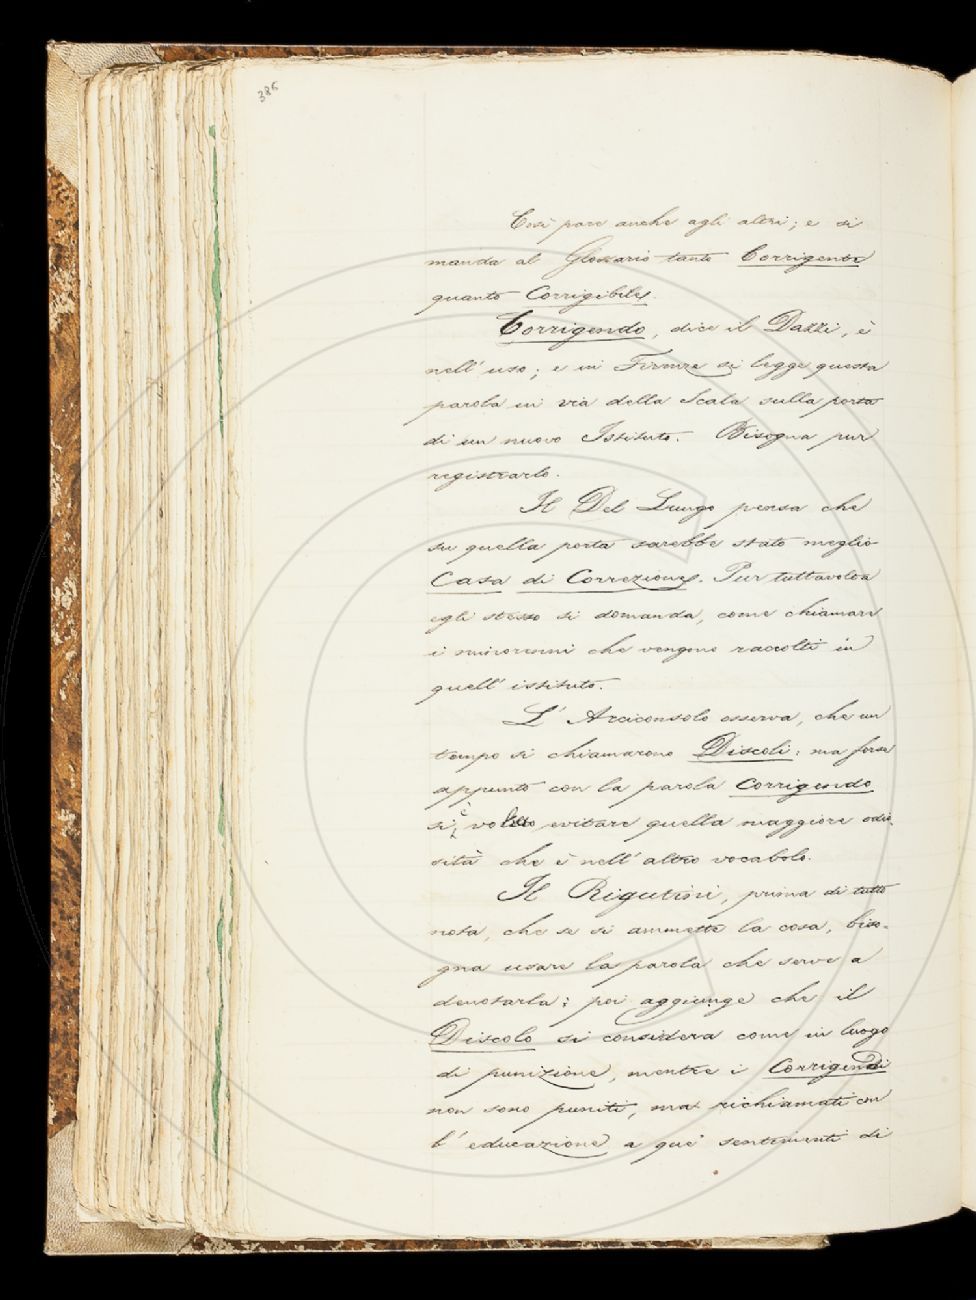 386
Così pare anche agli altri; e si
manda al Glossario tanto Corrigente
quanto Corrigibile.
Corrigendo, dice il Dazzi, è
nell'uso; e in Firenze si legge questa
parola in via della Scala sulla porta
di un nuovo Istituto. Bisogna pur
registrarlo.
Il Del Lungo pensa che
su quella porta sarebbe stato meglio
Casa di Correzione. Pur tuttavolta
egli stesso si domanda, come chiamare
i minorenni che vengono raccolti in
quell'istituto.
L'Arciconsolo osserva, che un
tempo si chiamarono Discoli: ma forse
appunto con la parola Corrigendo
si è voluto evitare quella maggiore odio-
sità che è nell'altro vocabolo.
Il Rigutini, prima di tutto
nota, che se si ammette la cosa, biso-
gna usare la parola che serve a
denotarla; poi aggiunge che il
Discolo si considera come in luogo
di punizione, mentre i Corrigendi
non sono puniti, ma richiamati con
l'educazione a que' sentimenti di